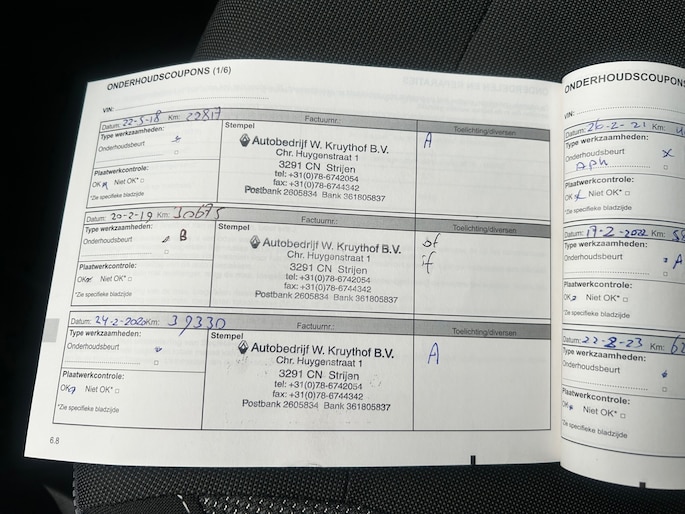 ONDERHOUDSCOUPONS (1/6)
VIN:
Datum: 22-5-18 Km: 22817
Factuurnr.:
Toelichting/diversen
Type werkzaamheden:
Onderhoudsbeurt
Plaatwerkcontrole:
OK Niet OK*
*Zie specifieke bladzijde
Stempel
Autobedrijf W. Kruythof B.V.
Chr. Huygenstraat 1
3291 CN Strijen
tel: +31(0)78-6742054
fax: +31(0)78-6744342
Postbank 2605834 Bank 361805837
A
Datum: 20-2-19 Km: 30675
Factuurnr.:
Toelichting/diversen
Type werkzaamheden:
Onderhoudsbeurt B
Plaatwerkcontrole:
OK Niet OK*
*Zie specifieke bladzijde
Stempel
Autobedrijf W. Kruythof B.V.
Chr. Huygenstraat 1
3291 CN Strijen
tel: +31(0)78-6742054
fax: +31(0)78-6744342
Postbank 2605834 Bank 361805837
Datum: 24-2-2020 Km: 39330
Factuurnr.:
Toelichting/diversen
Type werkzaamheden:
Onderhoudsbeurt
Plaatwerkcontrole:
OK Niet OK*
*Zie specifieke bladzijde
Stempel
Autobedrijf W. Kruythof B.V.
Chr. Huygenstraat 1
3291 CN Strijen
tel: +31(0)78-6742054
fax: +31(0)78-6744342
Postbank 2605834 Bank 361805837
A
6.8
ONDERHOUDSCOUPONS
VIN:
Datum: 26-2-21 Km:
Type werkzaamheden:
Onderhoudsbeurt X
APK
Plaatwerkcontrole:
OK Niet OK*
*Zie specifieke bladzijde
Datum: 17-2-2022 Km:
Type werkzaamheden:
Onderhoudsbeurt A
Plaatwerkcontrole:
OK Niet OK*
*Zie specifieke bladzijde
Datum: 22-8-23 Km:
Type werkzaamheden:
Onderhoudsbeurt
Plaatwerkcontrole:
OK Niet OK*
*Zie specifieke bladzijde